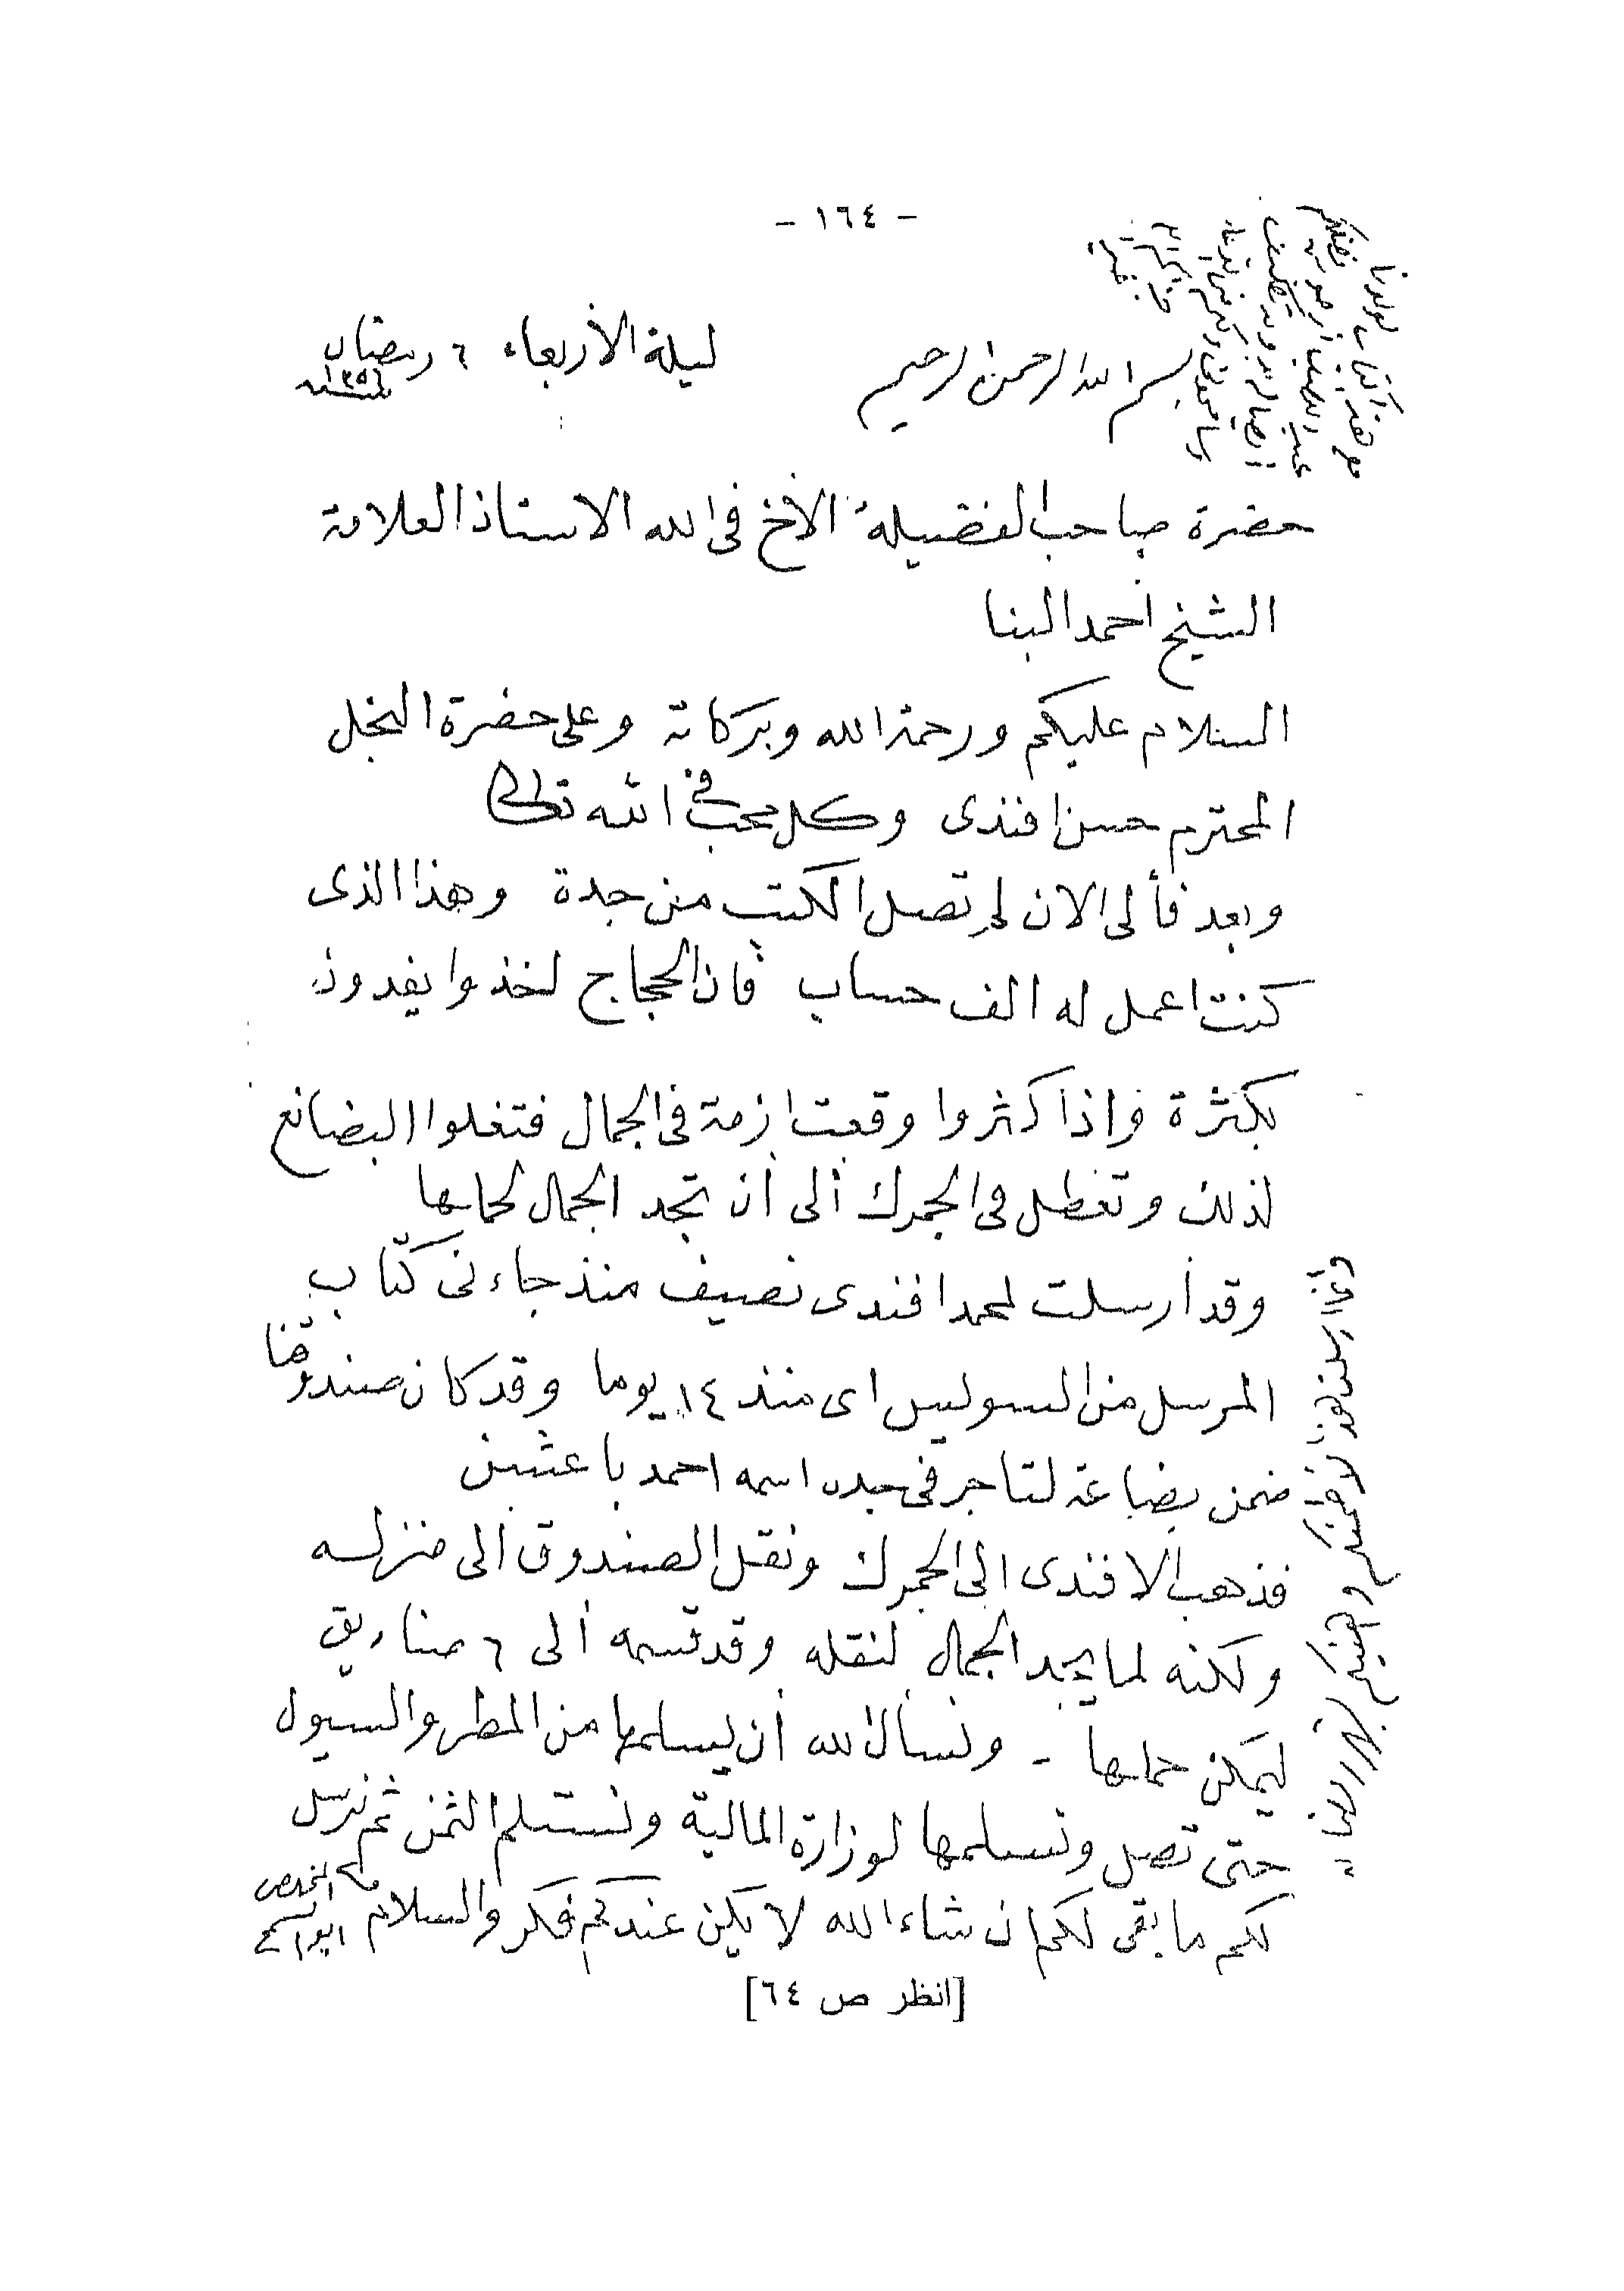 - ١٦٤ -
ليلة الأربعاء ٦ رمضان
سنة ١٣٥٦
بسم الله الرحمن الرحيم
حضرة صاحب الفضيلة الأخ فى الله الاستاذ العلامة
الشيخ أحمد البنا
السلام عليكم ورحمة الله وبركاته وعلى حضرة النجل
المحترم حسن افندى وكل محب فى الله تعالى
وبعد فألى الان لم تصل الكتب من جدة وهذا الذى
كنت اعمل له الف حساب فان الحجاج اخذوا يفدون
بكثرة واذا كثروا وقعت ازمة فى الجمال فتغلوا البضائع
لذلك وتعطل فى الجمرك ألى أن تجد الجمال لحملها
وقد أرسلت لمحمد افندى نصيف منذ جاءنى كتاب
المرسل من السويس اى منذ ١٤ يوما وقد كان صندوقنا
ضمن بضاعة لتاجر فى جده اسمه احمد باعشن
فذهب الافندى الى الجمرك ونقل الصندوق الى منزله
ولكنه لما يجد الجمال لنقله وقد قسمه ألى ٦ صناديق
ليمكن حملها - ونسأل الله أن يسلمها من المطر والسيول
حتى تصل ونسلمها لوزارة المالية ونستلم الثمن ثم نرسل
لكم ما بقى لكم ان شاء الله لا يكن عندكم فكر والسلام
المخلص
ابو السمح
وأنما ارسلت هذا لأطمئنكم واهنيكم بشهر رمضان
[انظر ص ٦٤]